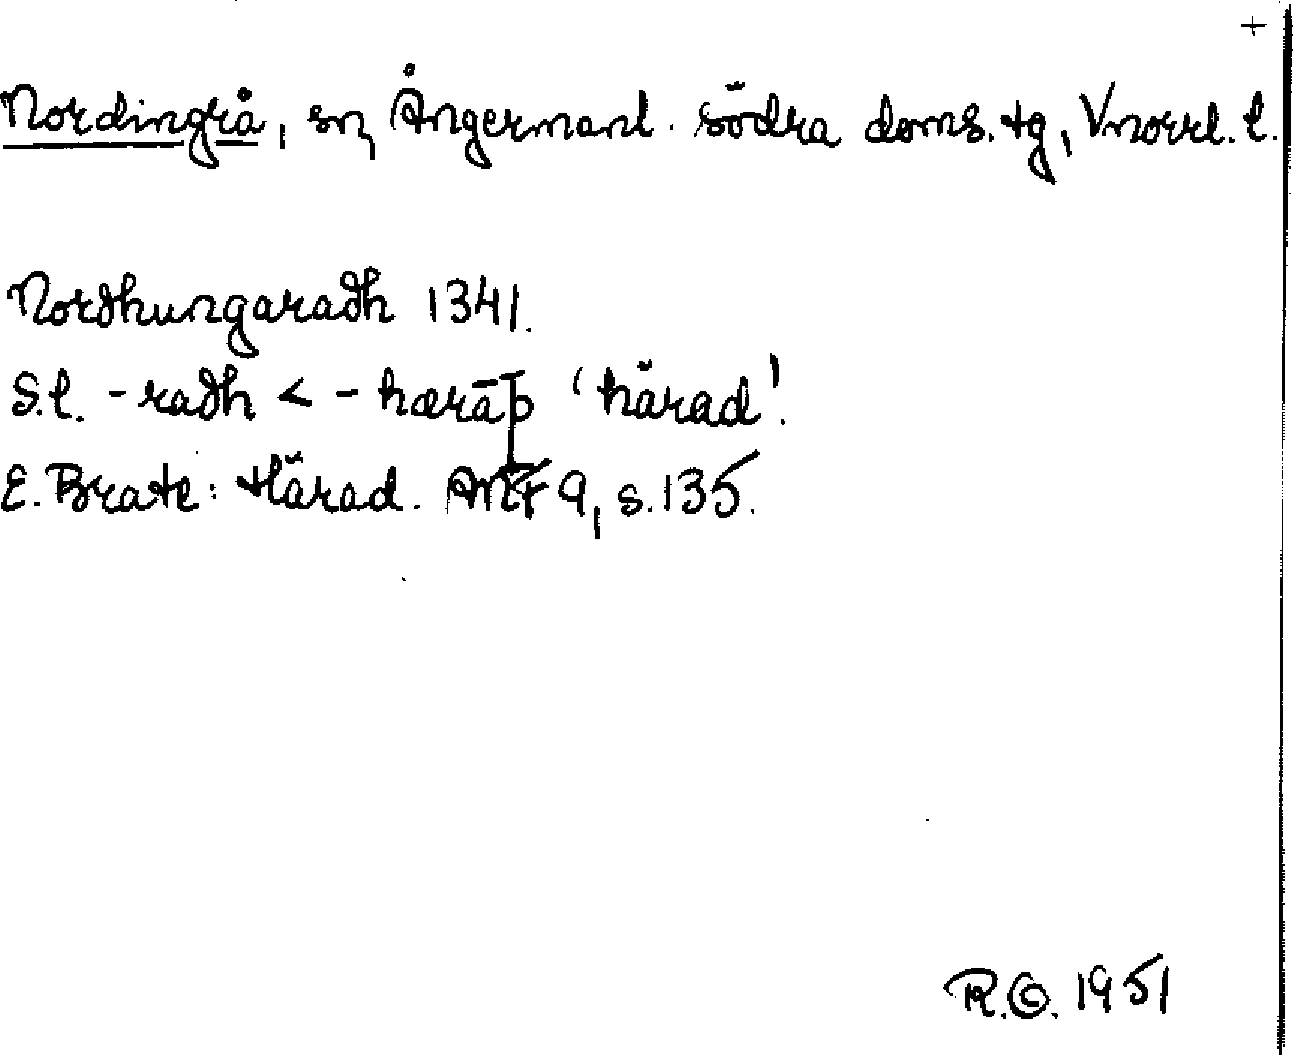 +
Nordingrå, sn, Ångermanl. södra doms. tg, Vnorrl. l.
Nordhungaradh 1341.
S.l. -radh < -hærāþ 'härad'.
E. Brate: Härad. ANF 9, s. 135.
R.G. 1951